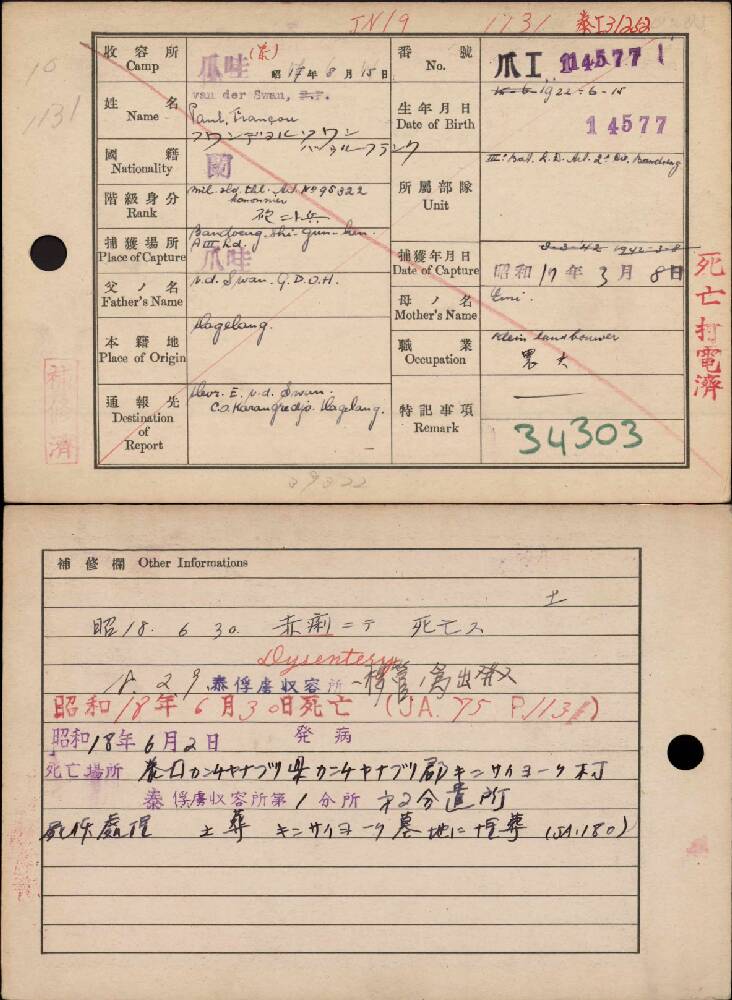 JN19 1731 泰I31262
10
1131
收容所 Camp 爪哇(东) 昭17年8月15日
番號 No. 爪I 114577 1
姓名 Name van der Swan, P.F.
Paul, François
フワンデヨルスワン
生年月日 Date of Birth 15-6-1922-6-15
14577
國籍 Nationality 蘭
階級身分 Rank mil. slg. thl. Art. No 95322
kanonnier
砲二等兵
所屬部隊 Unit IIIe Bat. L.D. Art. 2e Div. Bandoeng
捕獲場所 Place of Capture Bandoeng-shi-Gun-ken
A III Ld.
爪哇
捕獲年月日 Date of Capture 8-3-42 1942-3-8
昭和17年3月8日
父ノ名 Father's Name v.d. Swan. G.D.O.H.
母ノ名 Mother's Name Emi.
本籍地 Place of Origin Magelang.
職業 Occupation Klein landbouwer
農夫
通報先 Destination of Report Mevr. E. v.d. Swan.
C.O. Karangredjo Magelang.
特記事項 Remark
34303
死亡打電濟
補修濟
補修欄 Other Informations
土
昭18. 6 30. 赤痢ニテ 死亡ス
Dysentery
18. 2 9. 泰俘虜収容所ヘ移管ノ爲出発ス
昭和18年6月30日死亡 (JA. 75 P.1131)
昭和18年6月2日 発病
死亡場所 泰国カンチヤナブリ県カンチヤナブリ郡キンサイヨーク村
泰俘虜収容所第1分所 第2分遣所
死体處理 土葬 キンサイヨーク墓地に埋葬 (JA.180)